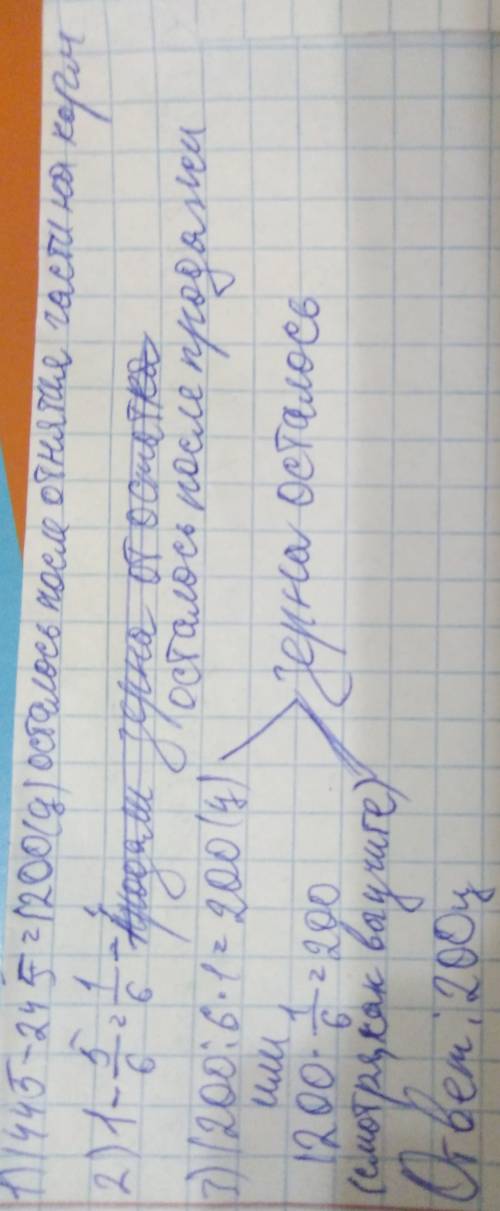 1) 1445 - 245 = 1200 (ц) осталось после отнятия части на корм
2) 1 - 5/6 = 1/6 - продали зерна от остатка
осталось после продажи
3) 1200 : 6 · 1 = 200 (ц)
или
1200 · 1/6 = 200
зерна осталось
(смотря как вы учите)
Ответ: 200 ц